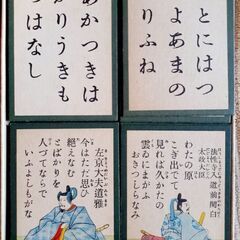 とにはつ
よあまの
りふね
あかつきは
かりうきも
のはなし
法性寺入道前関白
太政大臣
わたの原
こぎ出でて
見れば久かたの
雲ゐにまがふ
おきつしらなみ
左京大夫道雅
今はただ思ひ
絶えなむ
とばかりを
人づてならで
いふよしもがな